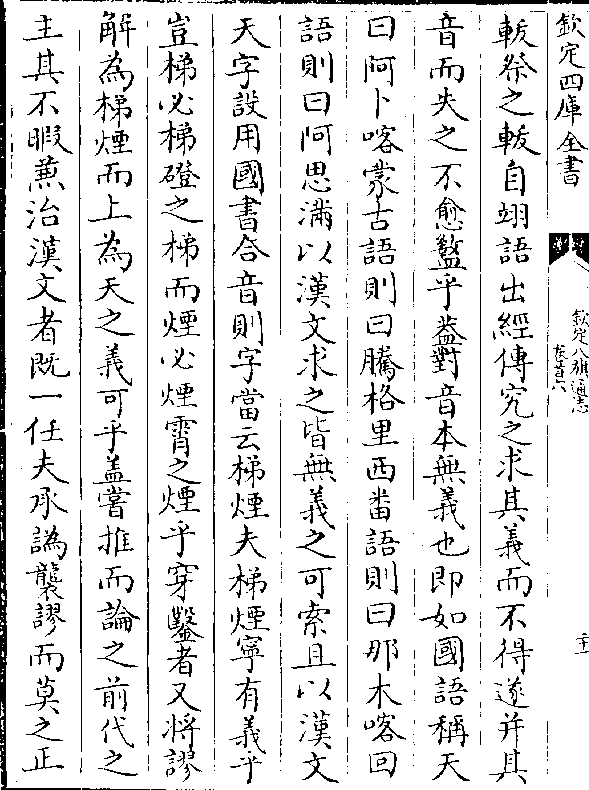 欽定四庫全書
欽定八旗通志
卷首六
二十一
軷祭之軷自翊語出經傳究之求其義而不得遂并其
音而失之不愈盭乎葢對音本無義也即如國語稱天
曰阿卜喀蒙古語則曰騰格里西畨語則曰那木喀回
語則曰阿思滿以漢文求之皆無義之可索且以漢文
天字設用國書合音則字當云梯煙夫梯煙寧有義乎
豈梯必梯磴之梯而煙必煙霄之煙乎穿鑿者又將謬
解為梯煙而上為天之義可乎盖嘗推而論之前代之
主其不暇蕪治漢文者既一任夫承譌襲謬而莫之正